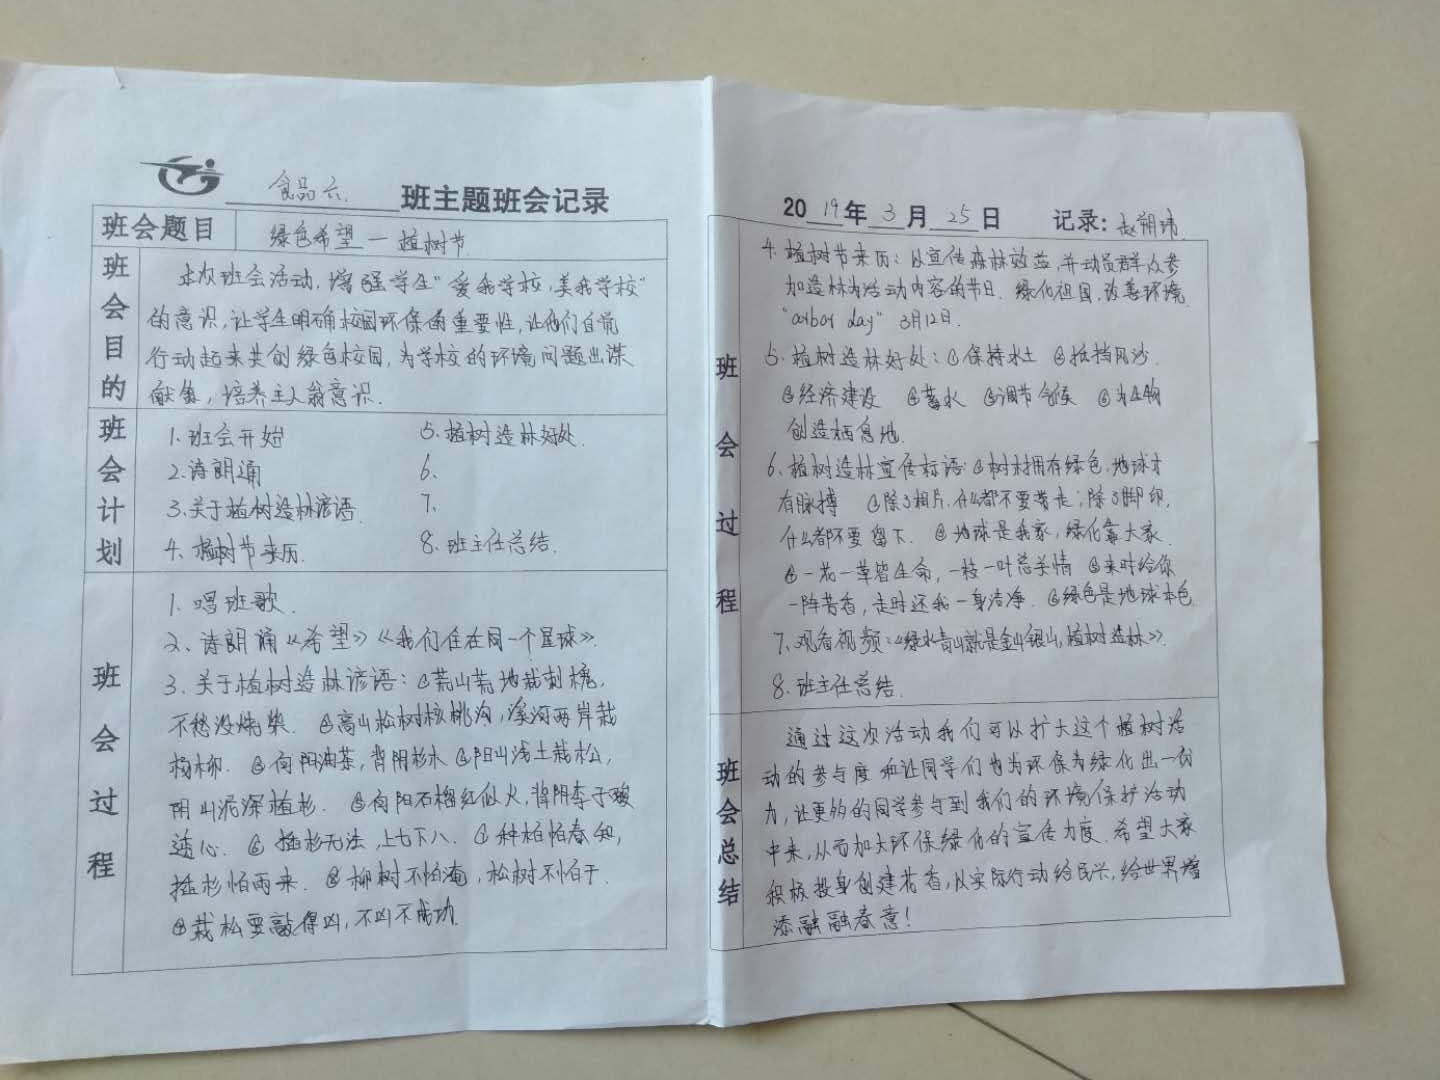 食品六 班主题班会记录
班会题目 绿色希望一植树节
班会目的
本次班会活动,增强学生"爱我学校,美我学校"
的意识,让学生明确校园环保的重要性,让他们自觉
行动起来共创绿色校园,为学校的环境问题出谋
献策,培养主人翁意识.
班会计划
1.班会开始 5.植树造林好处.
2.诗朗诵 6.
3.关于植树造林谚语. 7.
4.植树节来历. 8.班主任总结.
班会过程
1.唱班歌.
2.诗朗诵《希望》《我们住在同一个星球》.
3.关于植树造林谚语:①荒山荒地栽刺槐,
不愁没烧柴. ②高山松树核桃沟,溪河两岸栽
杨柳. ③向阳油茶,背阴杉木④阳山浅土栽松,
阴山泥深植杉. ⑤向阳石榴红似火,背阴李子酸
透心. ⑥插杉无法,上七下八. ⑦种柏怕春知,
插杉怕雨来. ⑧柳树不怕淹,松树不怕干.
⑨栽松要敲得凶,不凶不成功.
2019年3月25日 记录:赵朔玮.
班会过程
4.植树节来历:以宣传森林效益,并动员群众参
加造林为活动内容的节日. 绿化祖国,改善环境.
"arbor day" 3月12日.
5.植树造林好处:①保持水土 ②抵挡风沙.
③经济建设 ④蓄水 ⑤调节气候 ⑥为生物
创造栖息地.
6.植树造林宣传标语①树木拥有绿色,地球才
有脉搏 ②除了相片,什么都不要带走;除了脚印,
什么都不要留下. ③地球是我家,绿化靠大家.
④一花一草皆生命,一枝一叶总关情 ⑤来时给你
一阵芳香,走时还我一身洁净. ⑥绿色是地球本色
7.观看视频:《绿水青山就是金山银山,植树造林》.
8.班主任总结.
班会总结
通过这次活动我们可以扩大这个植树活
动的参与度和让同学们也为环保为绿化出一份
力,让更多的同学参与到我们的环境保护活动
中来,从而加大环保绿化的宣传力度.希望大家
积极投身创建花香,从实际行动给民兴,给世界增
添融融春意!